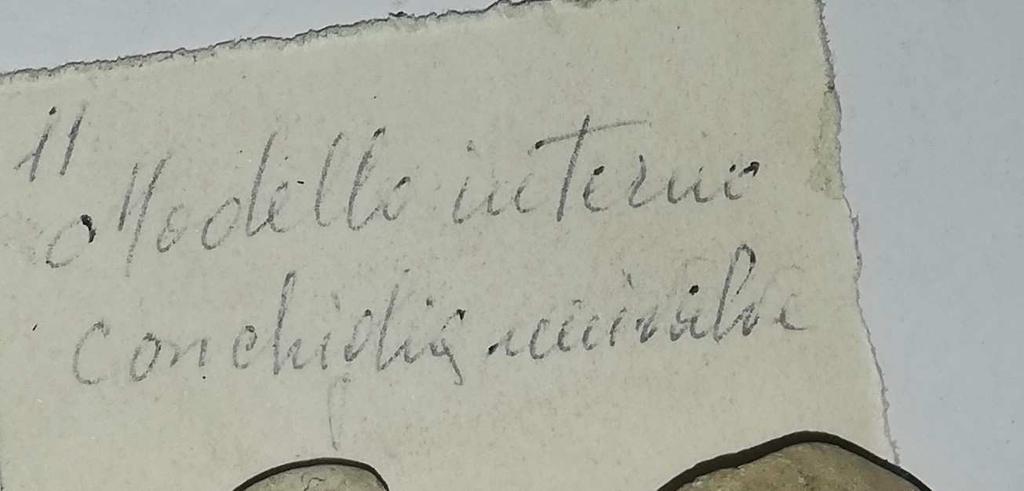 11
Modello interno
conchiglia univalve